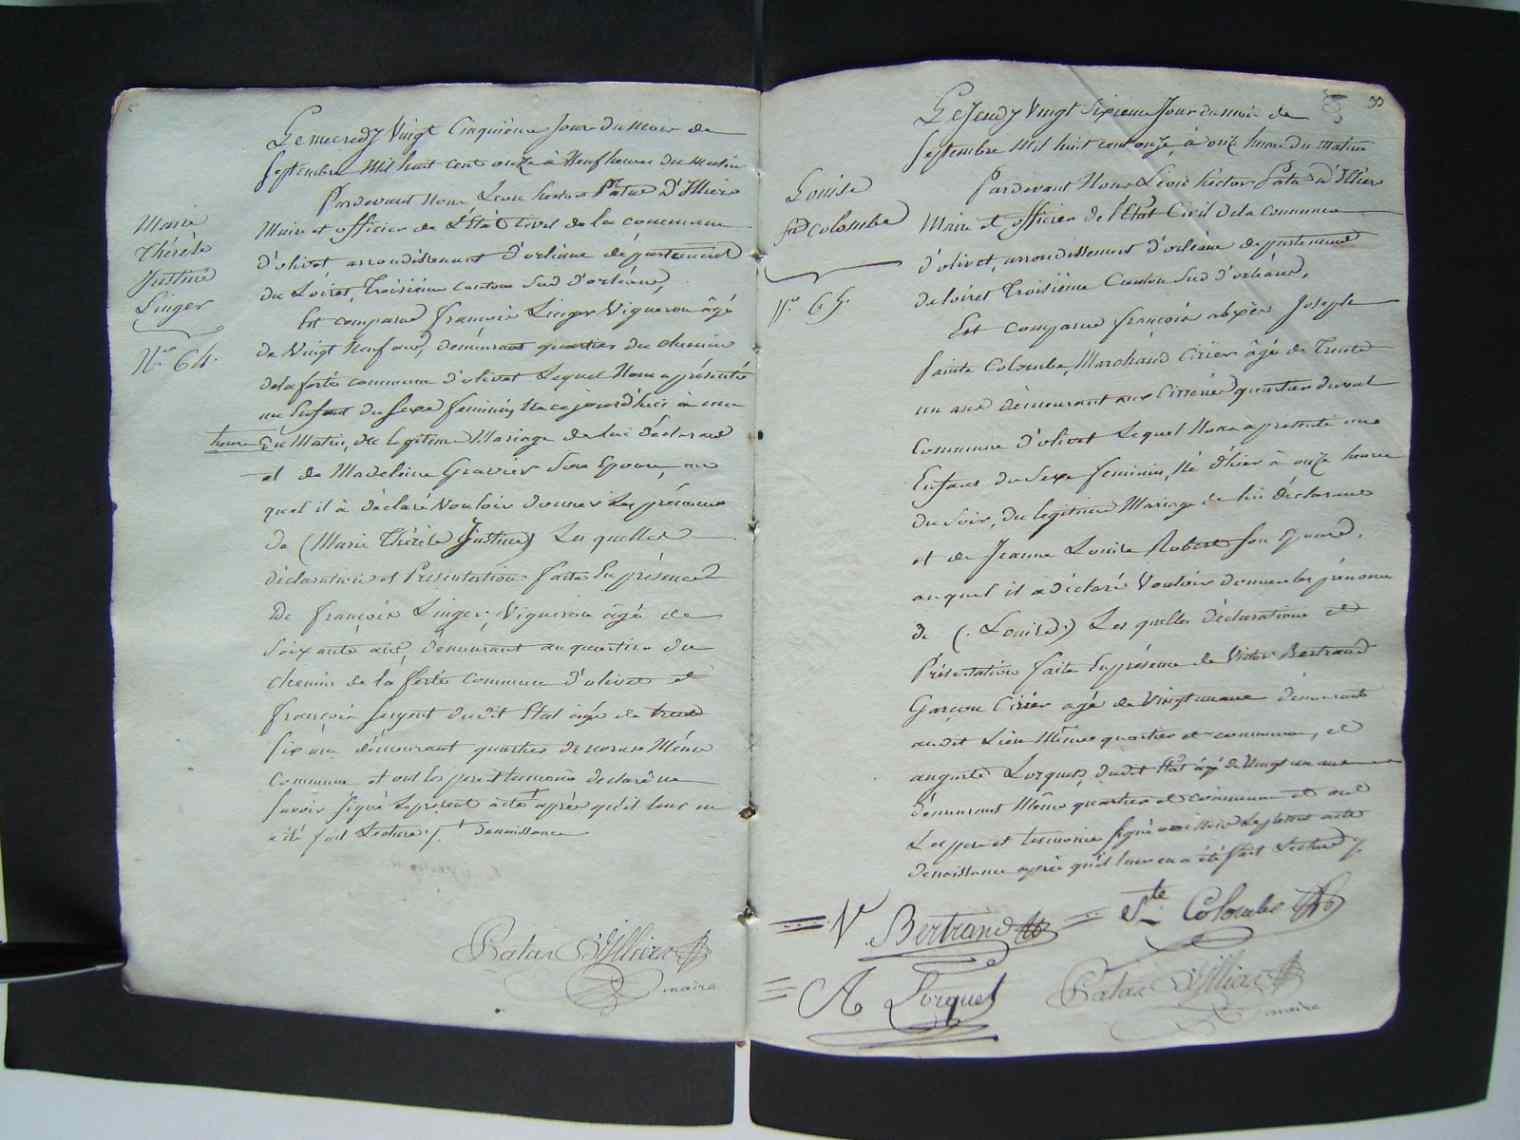 Marie
Thérèse
Justine
Linger
N.° 64.
Le mecredy Vingt Cinquième jour du mois de
Septembre Mil huit cent onze à Neuf heures du matin
Pardevant Nous Léon hector Patas D'Illiers
Maire et officier de L'État Civil de la commune
d'olivet arrondissement d'orléans département
du Loiret, Troisième canton Sud d'orléans,
Est comparu françois Linger Vigneron âgé
de Vingt Neuf ans, demeurant quartier du chemin
de la ferté commune d'olivet Lequel Nous a présenté
un Enfant du sexe féminin, Né ce jourd'hui à une
heure du Matin, de légitime Mariage de lui déclarant
et de Madeleine Gravier Son Epouse, au
quel il à déclaré Vouloir donner Les prénoms
de (Marie Thérèse Justine) Les quelles
déclaration et Présentation faites En présence
De françois Linger, Vigneron âgé de
Soixante ans, demeurant au quartier du
chemin de la ferté commune d'olivet et
françois sergent dudit Etat âgé de trente
six ans demeurant quartier de Même
Commune et ont les père et temoins déclaré ne
savoir signé Le présent acte après qu'il leur en
a été fait Lecture ./. de naissance
Patas D'Illiers
maire
Louise
S.te Colombe
N.° 65.
Le Jeudy Vingt Sixième Jour du mois de
Septembre Mil huit cent onze, à onze heures du matin
Pardevant Nous Léon hector Patas d'Illiers
Maire et officier de l'État Civil de la Commune
d'olivet, arrondissement d'orléans département
du loiret Troisième Canton Sud d'orléans,
Est comparu françois alexis Joseph
Sainte Colombe, Marchand Cirier âgé de Trente
un ans demeurant aux Cireries quartier du val
Commune d'olivet Lequel Nous a présenté une
Enfant du Sexe feminin, Né d'hier à onze heures
du Soir, du legitime Mariage de lui déclarant
et de Jeanne Louise Robert son Epouse,
auquel il a déclaré Vouloir donner les prénoms
de (. Louise .) Les quelles déclaration et
Présentation faite En présence de Victor Bertrand
Garçon Cirier agé de Vingt un ans demeurant
audit Lieu Même quartier et commune, et
auguste Lorquet, dudit Etat âgé de Vingt un ans
demeurant Même quartier et commune et ont
Les père et temoins signé avec Nous Le présent acte
de naissance après qu'il leur en a été fait Lecture ./.
V Bertrand
Ste Colombe
A Lorquet
Patas D'Illiers
maire